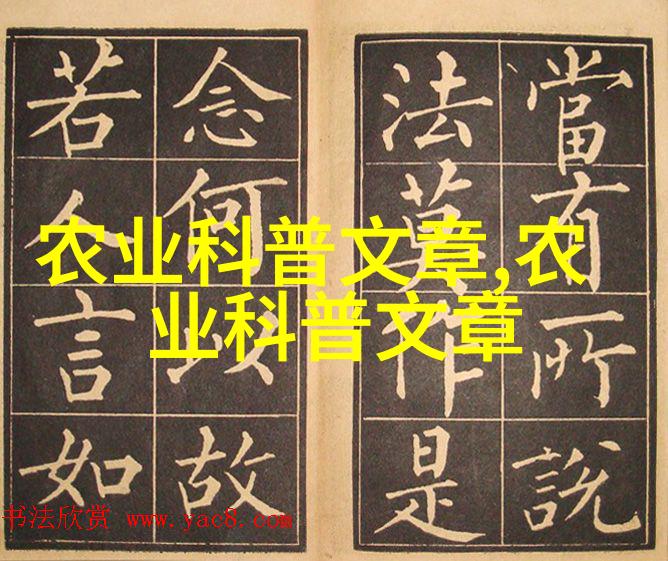 當有所說
法莫作是
念何以故
若人言如
农业科普文章,农
业科普文章
书法欣赏 www.yac8.com